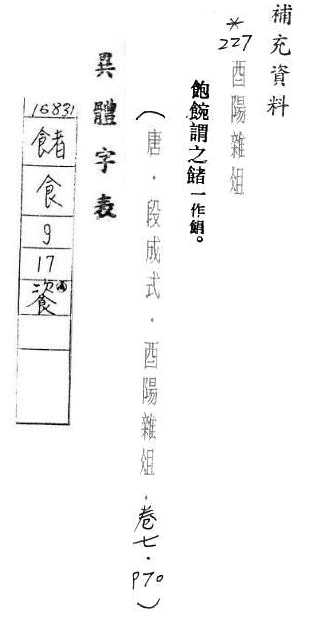 補充資料
*
227
酉陽雜俎
飽䬧謂之䭚一作䬼。
(唐．段成式．酉陽雜俎．卷七．P70)
異體字表
16831
䭚
食
9
17
餈